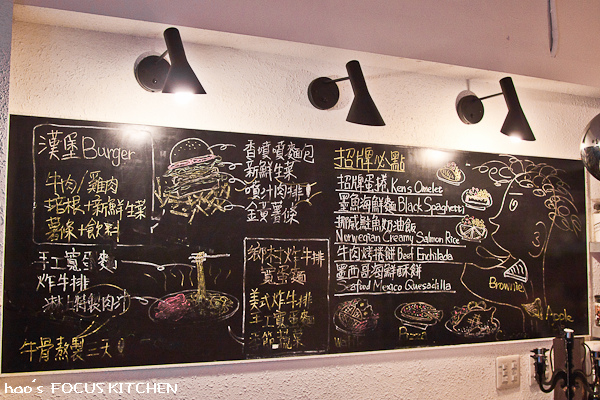 漢堡 Burger
牛肉/雞肉
培根+新鮮生菜
薯條+飲料
手工寬蛋麵
炸牛排
牛骨熬製二天!
香噴噴麵包
新鮮生菜
噴汁肉排!
金黃薯條
鄉村炸牛排
寬蛋麵
美式炸牛排
手工寬蛋麵
招牌必點
招牌蛋捲 Ken's Omelet
墨魚海鮮麵 Black Spaghetti
挪威鮭魚奶油飯
Norwegian Creamy Salmon Rice
牛肉烤捲餅 Beef Enchilada
墨西哥海鮮酥餅
Seafood Mexico Quesadilla
Brownies
Apple
hao's FOCUS KITCHEN